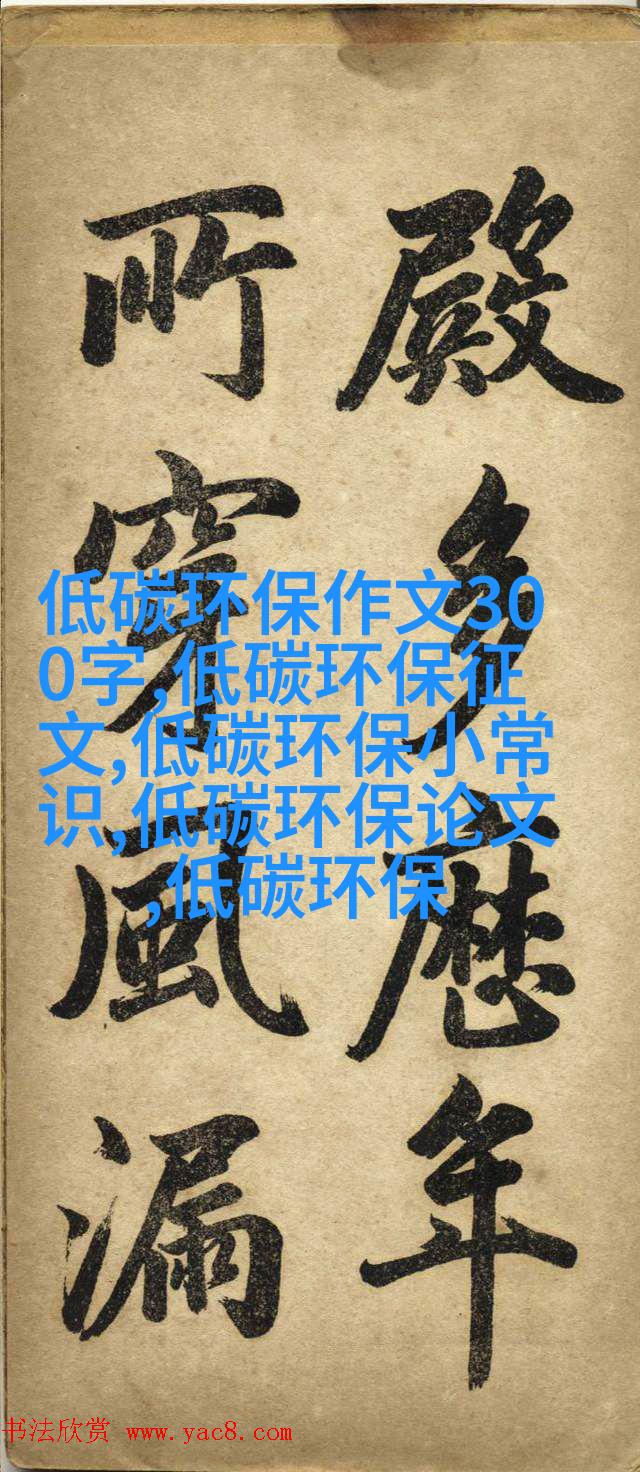 殿多歷年
所穿風漏
低碳环保作文30
0字,低碳环保征
文,低碳环保小常
识,低碳环保论文
,低碳环保
书法欣赏 www.yac8.com